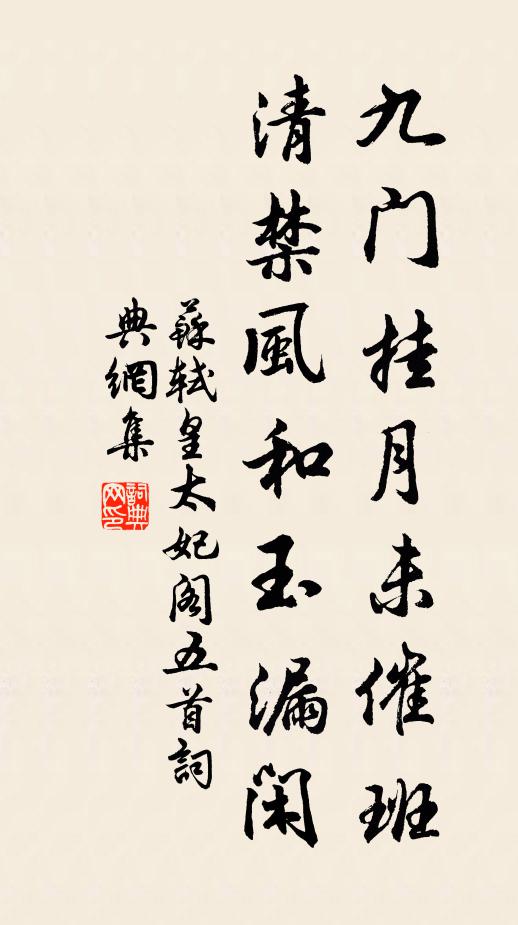 九门挂月未催班
清禁風和玉漏闲
蘇軾皇太妃阁五首詞
典網集
詞典网印